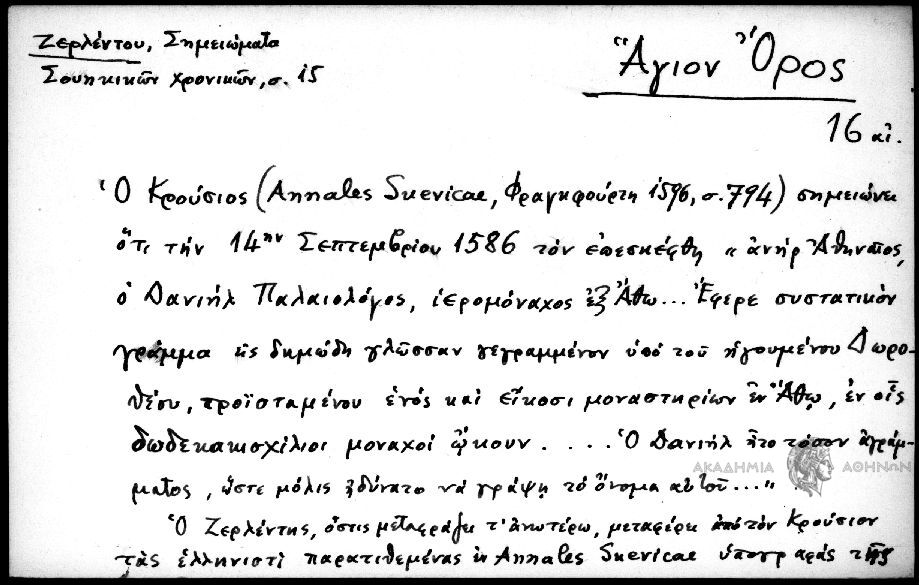 Ζερλέντου, Σημειώματα
Σουηκικῶν χρονικῶν, σ. 15
Ἅγιον Ὄρος
16 αἰ.
Ὁ Κρούσιος (Annales Suevicae, Φραγκφούρτη 1596, σ. 794) σημειώνει
ὅτι τήν 14ην Σεπτεμβρίου 1586 τὸν ἐπεσκέφθη « ἀνήρ Ἀθηναῖος,
ὁ Δανιήλ Παλαιολόγος, ἱερομόναχος ἐξ Ἄθω... Ἔφερε συστατικὸν
γράμμα εἰς δημώδη γλῶσσαν γεγραμμένον ὑπό τοῦ ἡγουμένου Δωρο-
θέου, προϊσταμένου ἑνός καὶ εἴκοσι μοναστηρίων ἐν Ἄθῳ, ἐν οἷς
δωδεκακισχίλιοι μοναχοί ᾤκουν . . . . Ὁ Δανιήλ ἦτο τόσον ἀγράμ-
ματος, ὥστε μόλις ἠδύνατο νά γράψῃ τό ὄνομα αὐτοῦ ... »
ΑΚΑΔΗΜΙΑ ΑΘΗΝΩΝ
Ὁ Ζερλέντης, ὅστις μεταφράζει τ' ἀνωτέρω, μεταφέρει ἀπό τὸν Κρούσιον
τὰς ἑλληνιστί παρατιθεμένας ἐν Annales Suevicae ὑπογραφάς τῆς